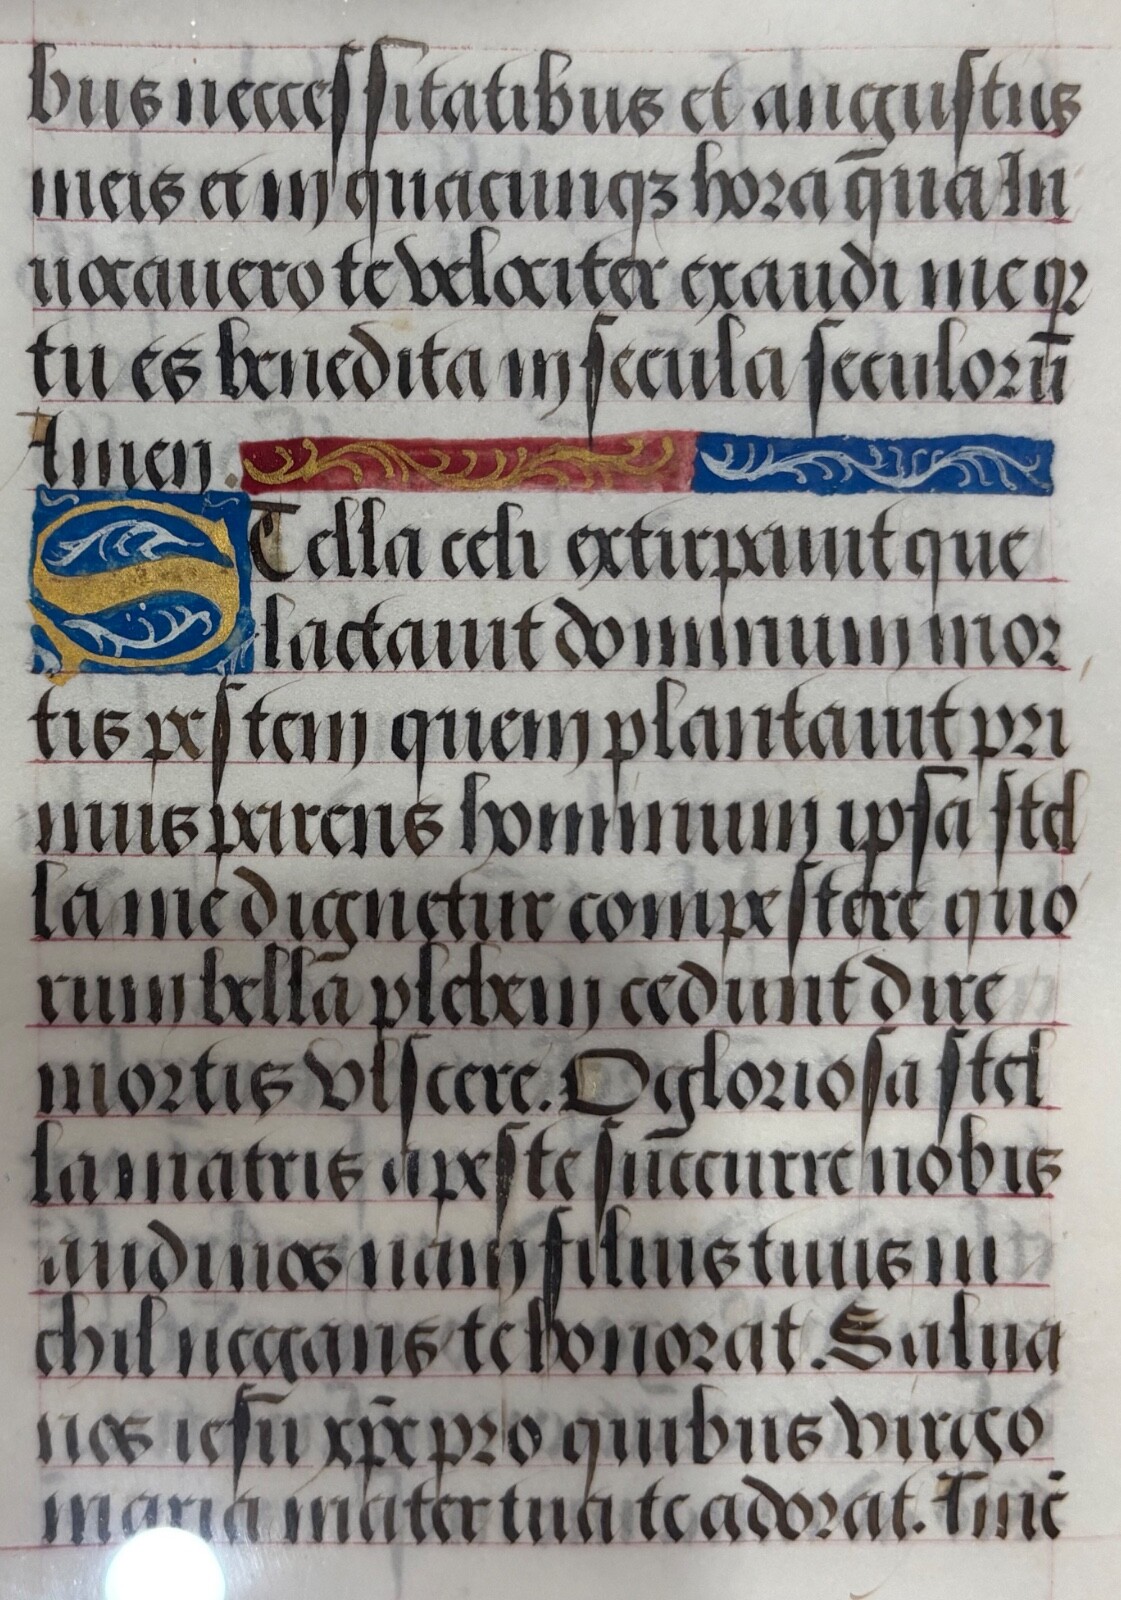 bus neccessitatibus et angustus
meis et in quacunqꝫ hora q̄ua In
uocauero te velociter exaudi me qꝛ
tu es benedita in secula seculorū
Amen.
STella celi extirpauit que
lactauit dominum mor
tis pestem quem plantauit pri
mus parens hominum ipsā stel
la me dignetur compestere quo
rum bellā plebem cedunt dire
mortis vlscere. O gloriosa stel
la matris a peste sūccurre nobis
audi nos nam filius tuus ni
chil negans te honorat. Salua
nos iesū xp̄e pro quibus virgo
maria mater tua te adorat. Amē